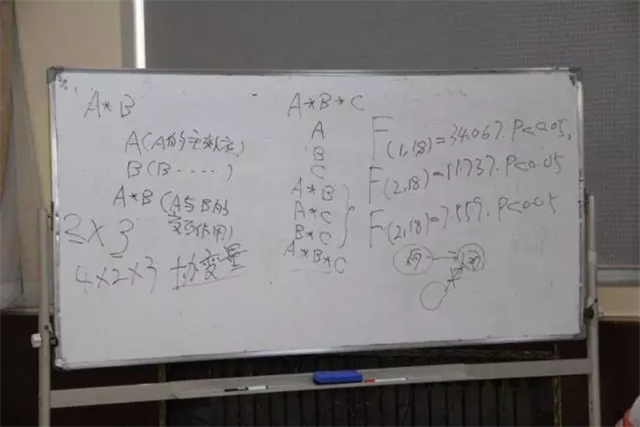 A*B
A(A的主效应)
B(B.....)
A*B(A与B的
交互作用)
3×3
4×2×3 协变量
A*B*C
A
B
C
A*B
A*C
B*C
A*B*C
F(1,18)=34.067.P<0.05,
F(2,18)=11.737.P<0.05
F(2,18)=7.559.P<0.05
因